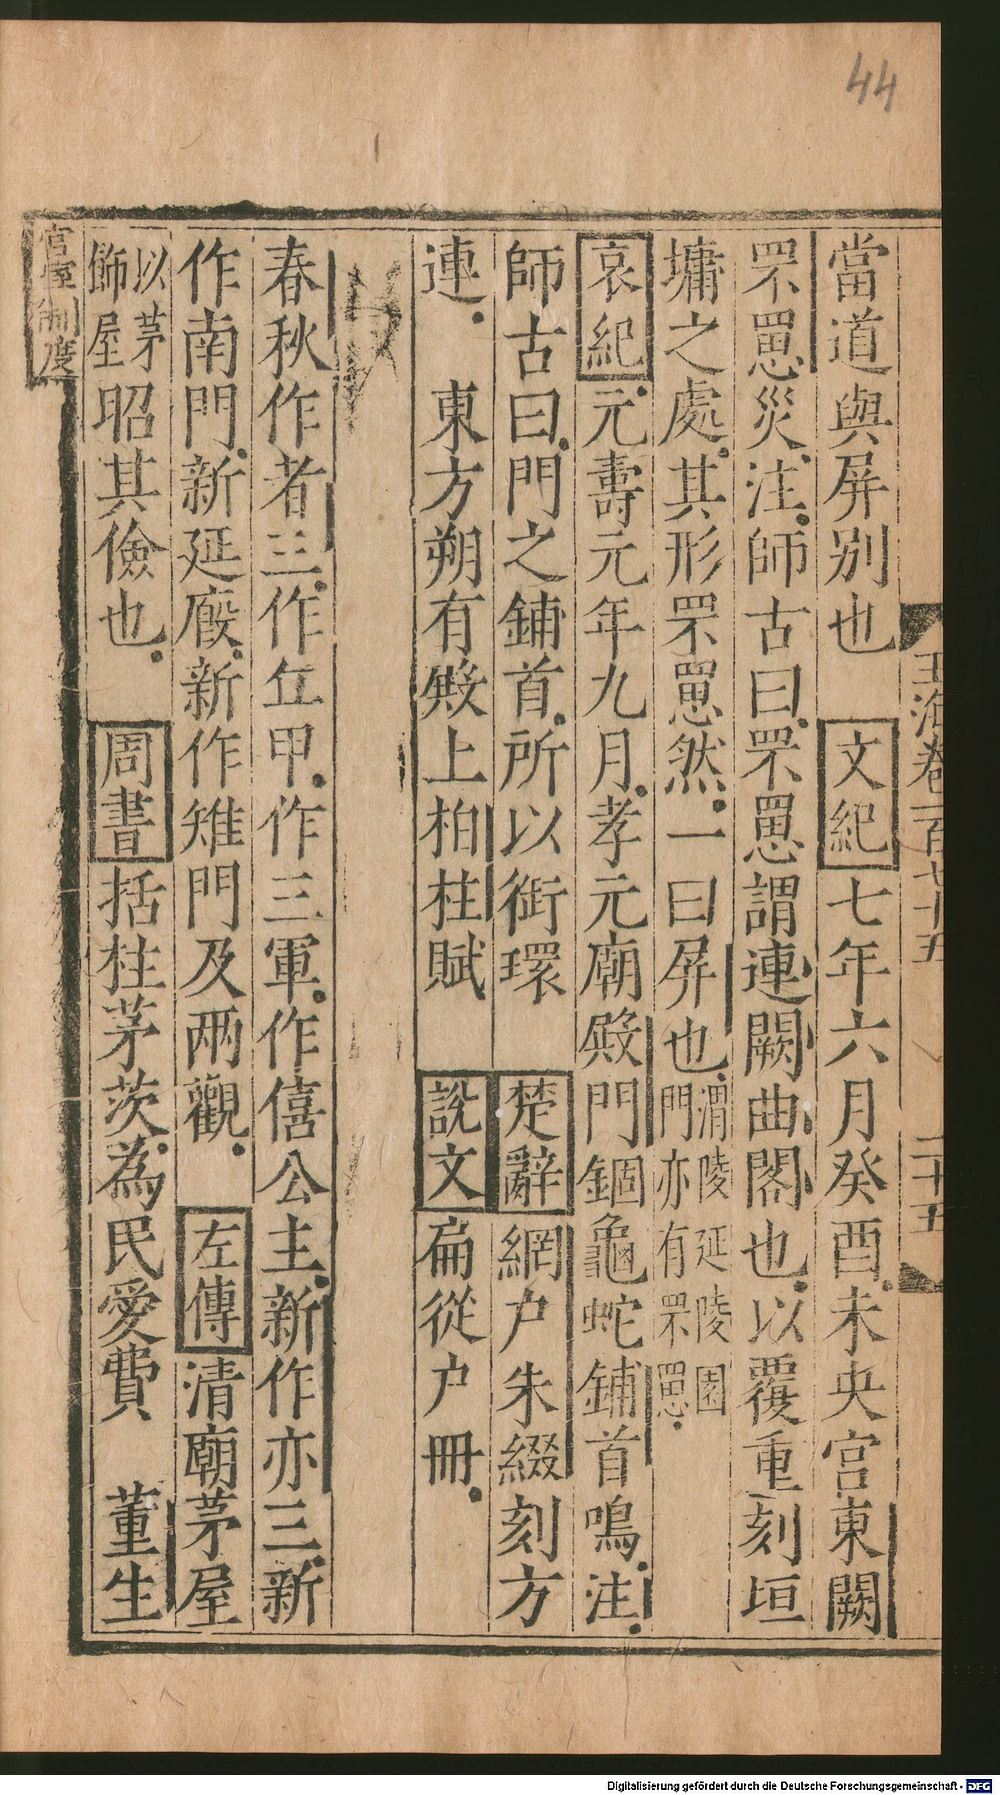 44
玉海卷一百七十五 二十五
當道與屏别也 文紀七年六月癸酉未央宫東闕
罘罳災注師古曰罘罳謂連闕曲閣也以覆重刻垣
墉之處其形罘罳然一曰屏也渭陵延陵園門亦有罘罳
哀紀元壽元年九月孝元廟殿門銅龜蛇鋪首鳴注
師古曰門之鋪首所以銜環 楚辭網户朱綴刻方
連 東方朔有殿上柏柱賦 說文扁從户冊
春秋作者三作丘甲作三軍作僖公主新作亦三新
作南門新延廐新作雉門及两觀 左傳清廟茅屋
以茅飾屋昭其儉也 周書括柱茅茨為民愛費 董生
宫室制度
Digitalisierung gefördert durch die Deutsche Forschungsgemeinschaft - DFG